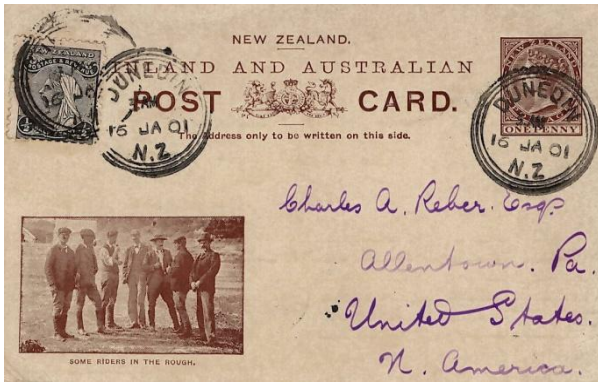 NEW ZEALAND.
INLAND AND AUSTRALIAN
POST CARD.
The Address only to be written on this side.
NEW ZEALAND
POSTAGE & REVENUE
DUNEDIN
16 JA 01
N.Z
NEW ZEALAND
ONE PENNY
DUNEDIN
16 JA 01
N.Z
Charles A. Reber. Esq.
Allentown. Pa.
United States.
N. America.
SOME RIDERS IN THE ROUGH.